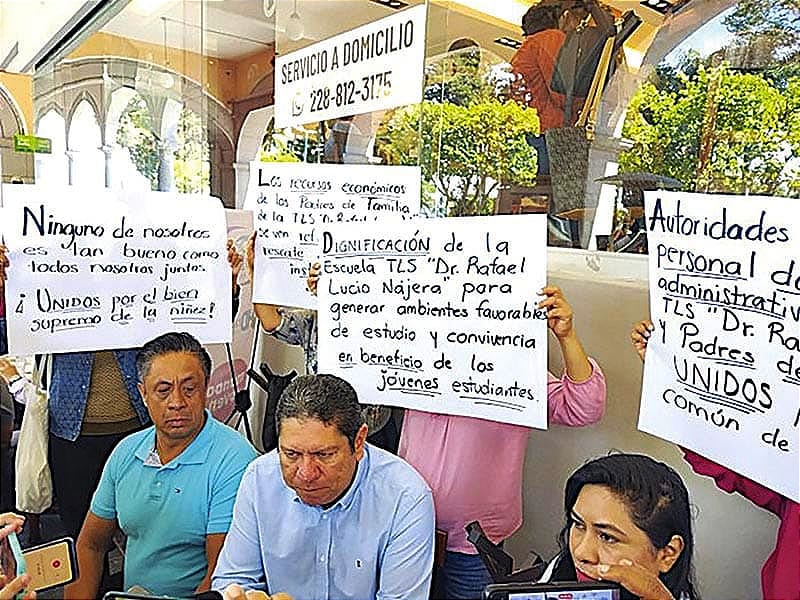 SERVICIO A DOMICILIO
228-812-3175
Ninguno de nosotros
es tan bueno como
todos nosotros juntos.
¡UNIDOS por el bien
supremo de la niñez!
Los recursos económicos
de los Padres de Familia
de la TLS
se ven
rescate
DIGNIFICACIÓN de la
Escuela TLS "Dr. Rafael
Lucio Nájera" para
generar ambientes favorables
de estudio y convivencia
en beneficio de los
jóvenes estudiantes.
Autoridades
personal
administrativ
TLS "Dr. Ra
y Padres de
UNIDOS
común de